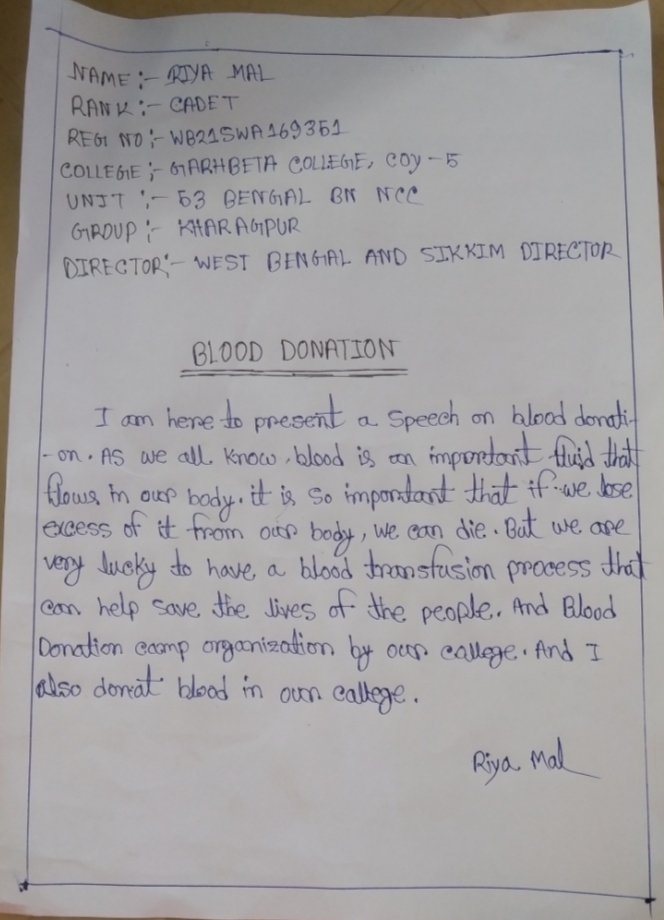 NAME :- RIYA MAL
RANK :- CADET
REGI NO :- WB21SWA169351
COLLEGE :- GARHBETA COLLEGE, COY-5
UNIT :- 53 BENGAL BN NCC
GROUP :- KHARAGPUR
DIRECTOR :- WEST BENGAL AND SIKKIM DIRECTOR
BLOOD DONATION
I am here to present a Speech on blood donati-
-on. As we all know, blood is an important fluid that
flows in our body. it is so important that if we lose
excess of it from our body, we can die. But we are
very lucky to have a blood transfusion process that
can help save the lives of the people. And Blood
Donation camp organization by our callege. And I
also donat blood in our callege.
Riya Mal